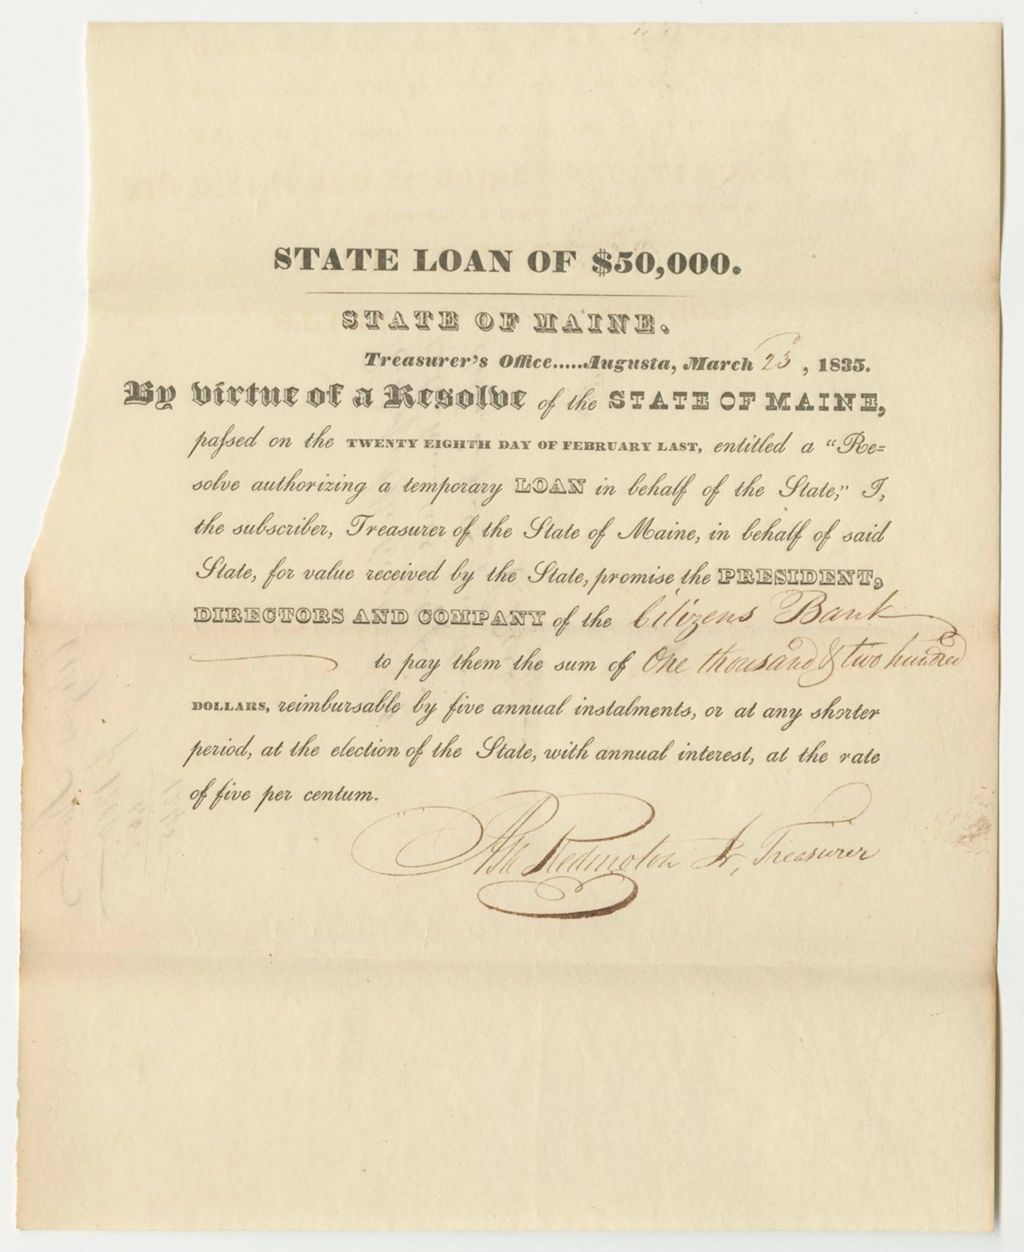 STATE LOAN OF $50,000.
STATE OF MAINE.
Treasurer's Office.....Augusta, March 23, 1835.
By virtue of a Resolve of the STATE OF MAINE,
passed on the TWENTY EIGHTH DAY OF FEBRUARY LAST, entitled a "Re=
solve authorizing a temporary LOAN in behalf of the State," I,
the subscriber, Treasurer of the State of Maine, in behalf of said
State, for value received by the State, promise the PRESIDENT,
DIRECTORS AND COMPANY of the Citizens Bank
to pay them the sum of One thousand & two hundred
DOLLARS, reimbursable by five annual instalments, or at any shorter
period, at the election of the State, with annual interest, at the rate
of five per centum.
Asa Redington Jr, Treasurer